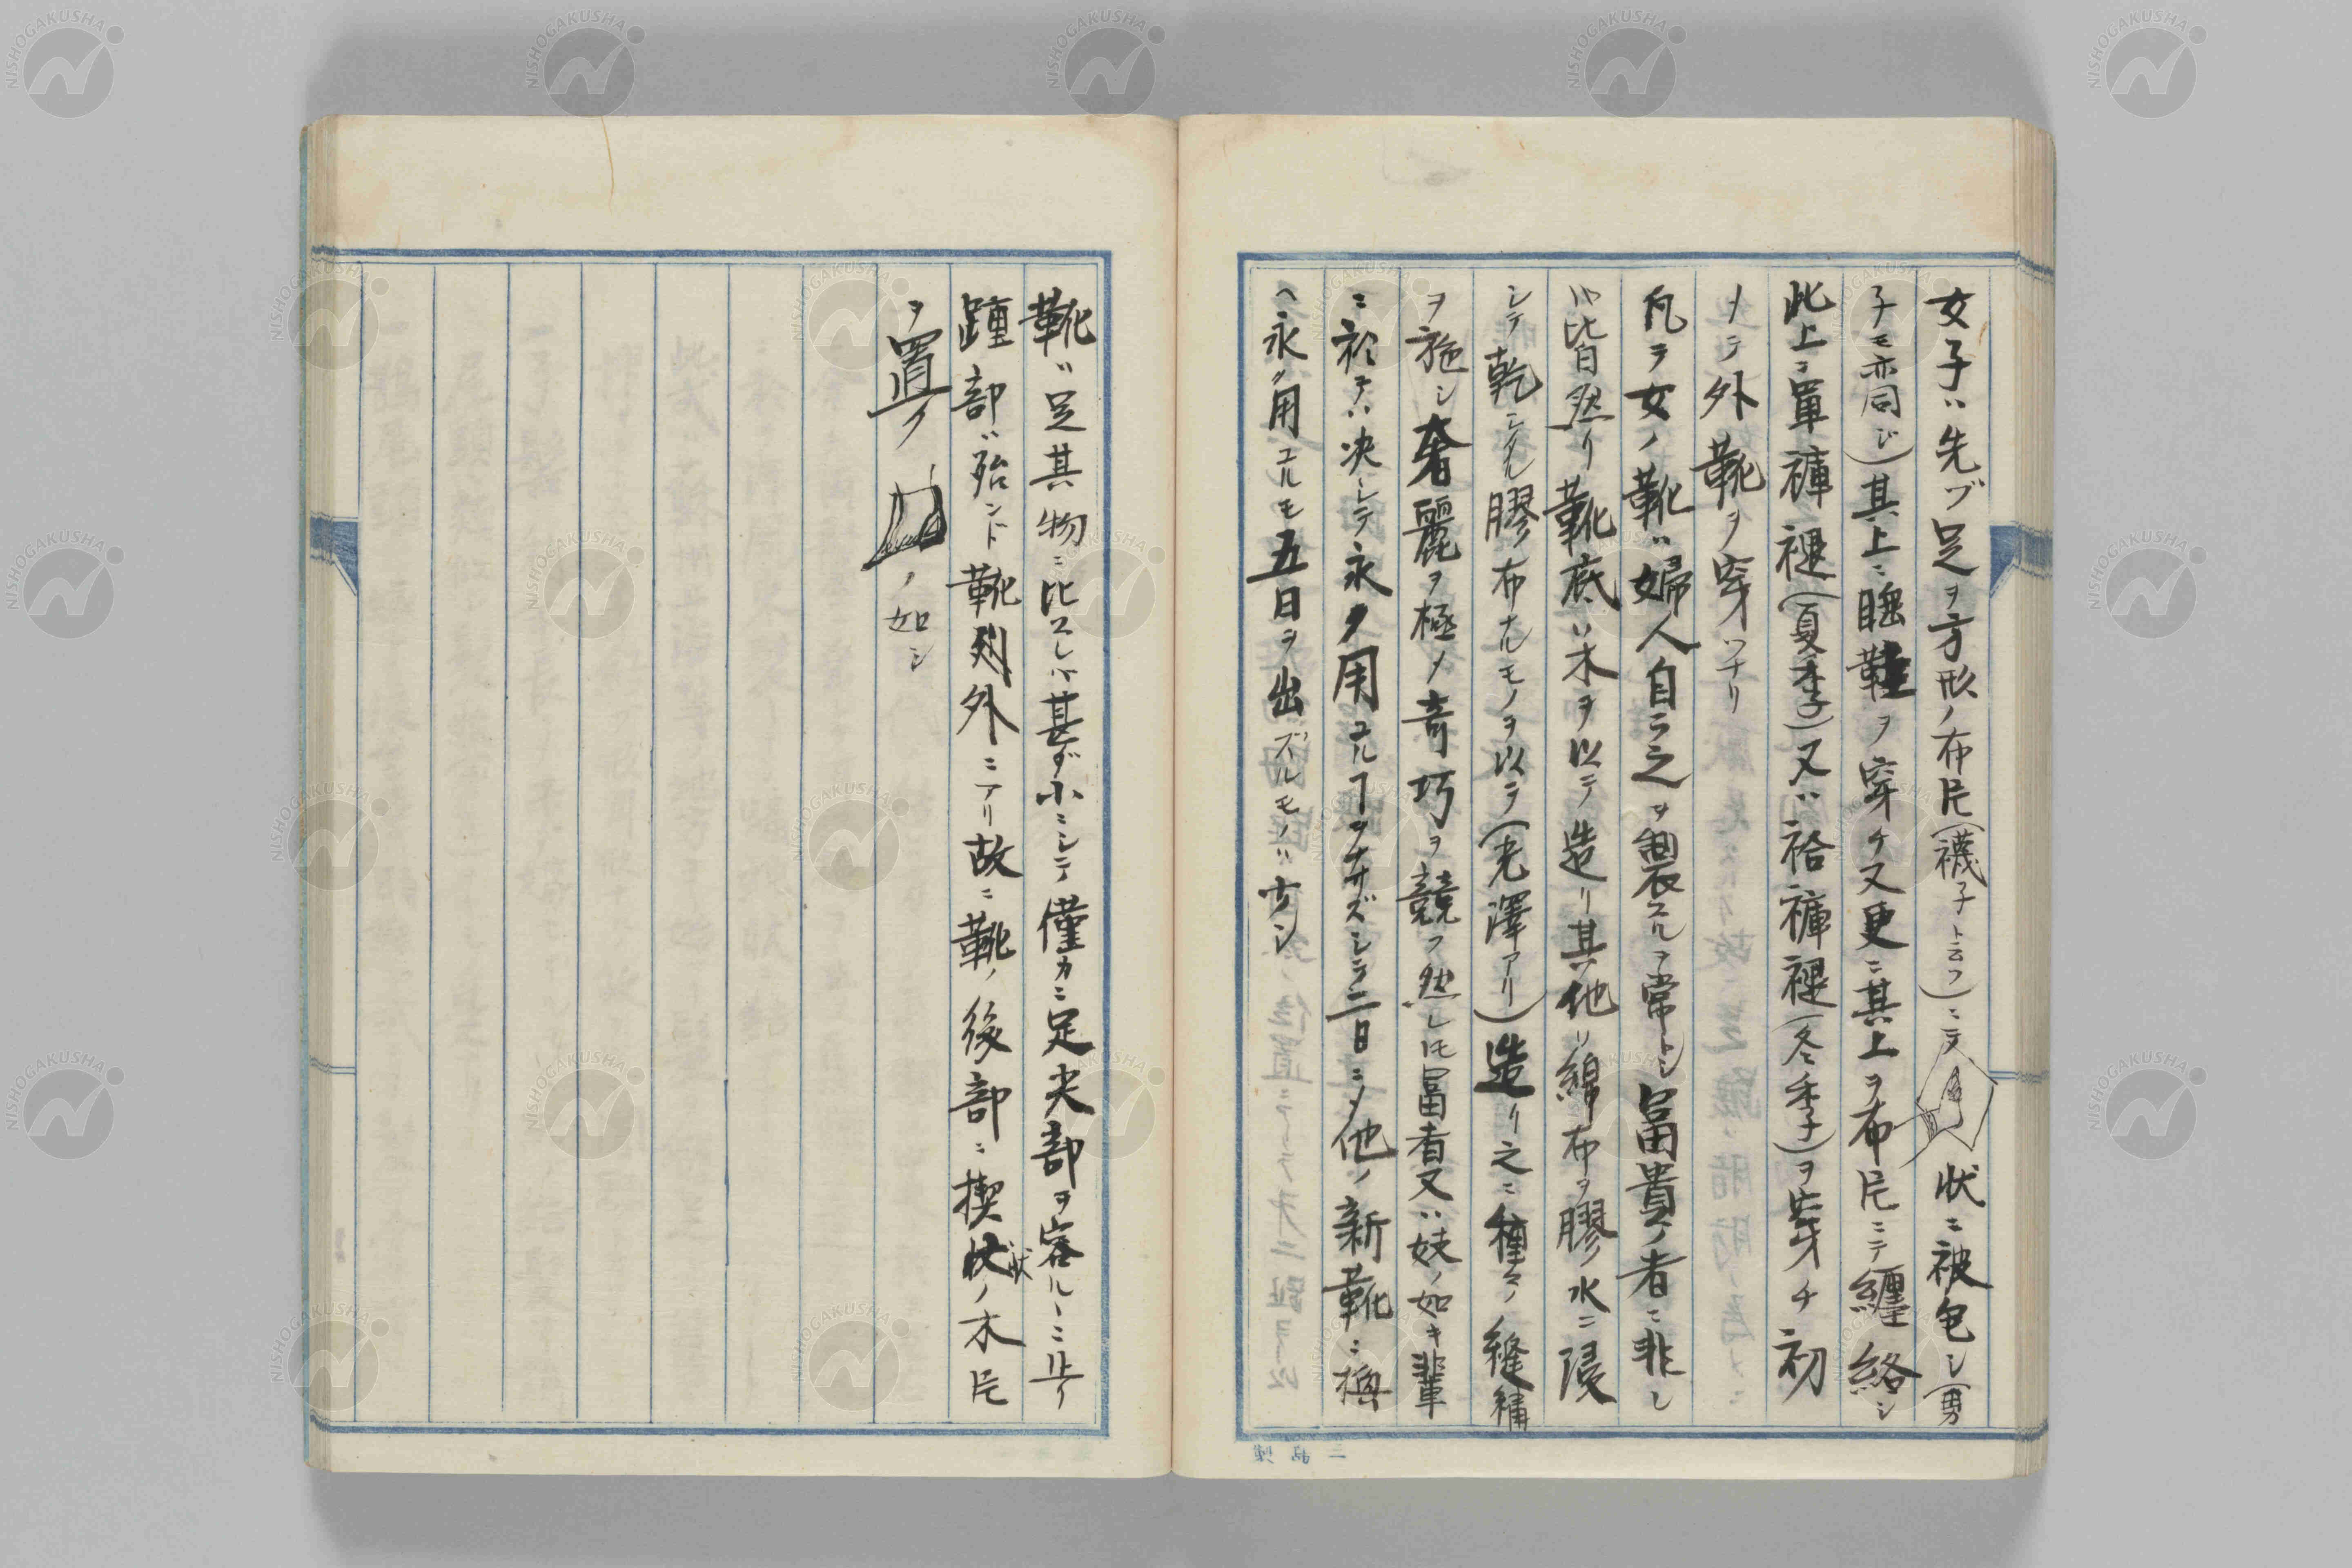 女子ハ先ヅ足ヲ方形ノ布片(襪子ト云フ)ニテ状ニ被包シ(男
子モ亦同ジ)其上ニ睡鞋ヲ穿チ又更ニ其上ヲ布片ニテ纏絡シ
此上ニ單褲褪(夏季)又ハ袷褲褪(冬季)ヲ穿チ初
メテ外靴ヲ穿ツナリ
凡ラ女ノ靴ハ婦人自ラ之ヲ製スルヲ常トシ冨貴ノ者ニ非レ
ハ皆然リ靴底ハ木ヲ以テ造リ其他ハ綿布ヲ膠水ニ浸
シテ乾シタル膠布ナルモノヲ以テ(光澤アリ)造リ之ニ種々ノ縫補
ヲ施シ奢麗ヲ極メ奇巧ヲ競フ然レ𪜈冨者又ハ妓ノ如キ輩
ニ於テハ决シテ永ク用ユルヿヲナサズシテ二日ニメ他ノ新靴ニ換
ヘ永ク用ユルモ五日ヲ出ズルモノハ少シ
靴ハ足其物ニ比スレバ甚ダ小ニシテ僅カニ足尖部ヲ容ルヽニ止リ
踵部ハ殆ンド靴外ニアリ故ニ靴ノ後部ニ楔状ノ木片
ヲ置クノ如シ
NISHOGAKUSHA